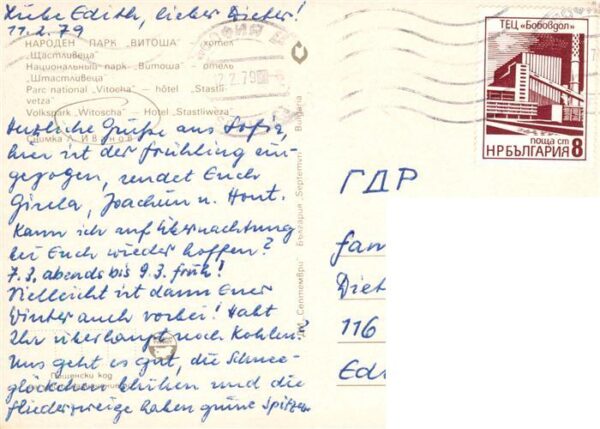 Liebe Edith, lieber Dieter!
11.2.79
НАРОДЕН ПАРК „ВИТОША" — хотел
„Щастливеца"
Национальный парк „Витоша" — отель
„Штастливеца"
Parc national „Vitocha" — hôtel „Stastli-
vetza"
Volkspark „Witoscha" — Hotel „Stastliweza"
Снимка Л. Иванов
Herzliche Grüße aus Sofia,
hier ist der Frühling ein-
gezogen, sendet Euch
Gisela, Joachim u. Horst.
Kann ich auf Übernachtung
bei Euch wieder hoffen?
7.3. abends bis 9.3. früh!
Vielleicht ist dann Euer
Winter auch vorbei! Habt
Ihr überhaupt noch Kohlen?
Uns geht es gut, die Schnee-
glöckchen blühen und die
Fliederzweige haben grüne Spitzen.
Пощенски код
ДИ „Септември" България Septemvri Bulgaria
СОФИЯ
2.2.79
ТЕЦ „Бобовдол"
поща ст
НР БЪЛГАРИЯ 8
ГДР
fam
Diet
116
Edi